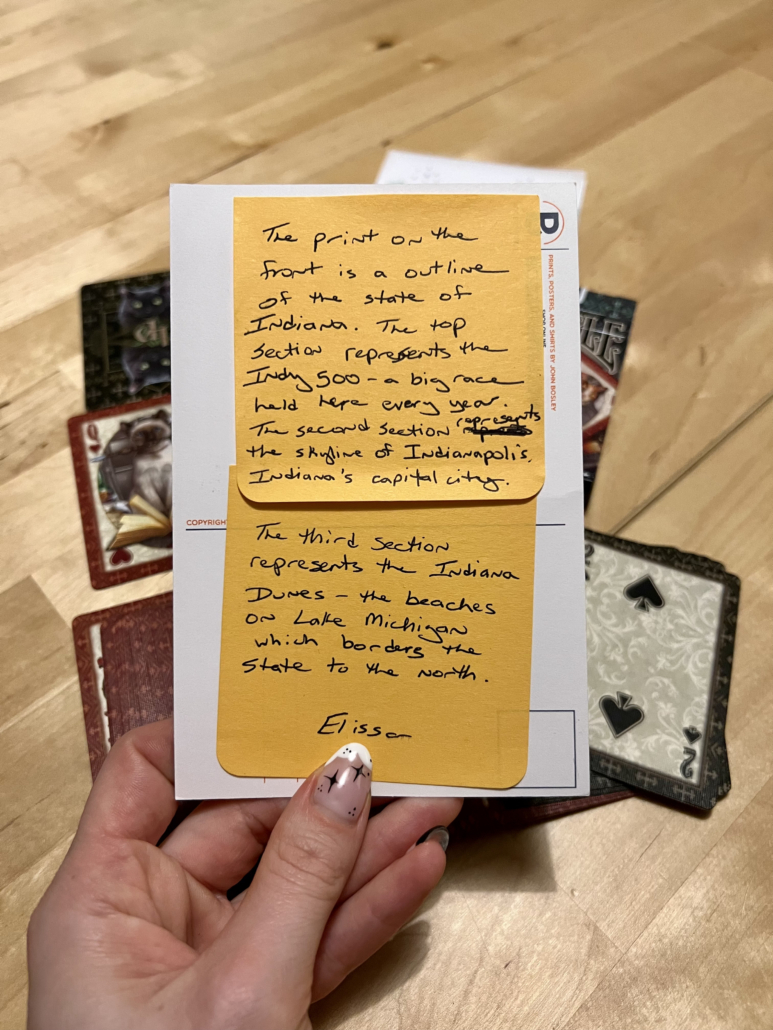 The print on the
front is a outline
of the state of
Indiana. The top
section represents the
Indy 500 - a big race
held here every year.
The second section represents
the skyline of Indianapolis,
Indiana's capital city.
The third section
represents the Indiana
Dunes - the beaches
on Lake Michigan
which borders the
state to the north.
Elissa
PRINTS, POSTERS, AND SHIRTS BY JOHN BOSLEY
COPYRIGH
Q
2